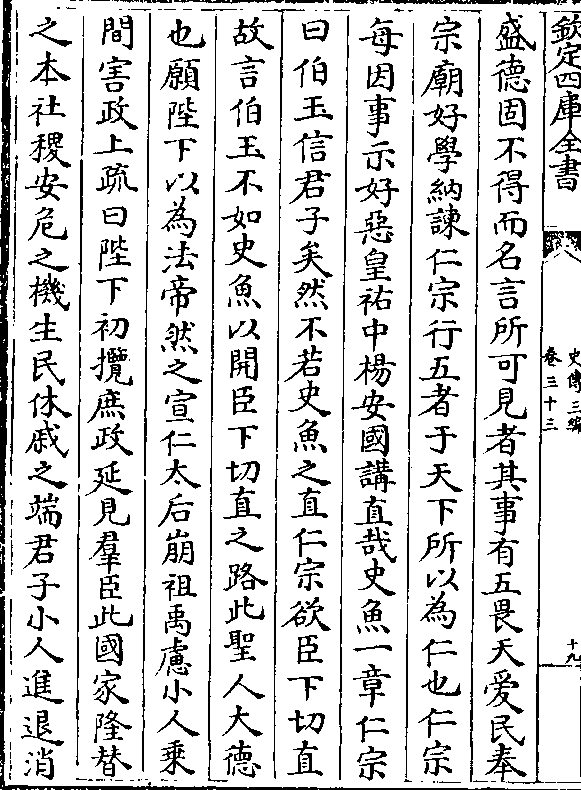 欽定四庫全書
史傳三編
卷三十三
十九
盛德固不得而名言所可見者其事有五畏天愛民奉
宗廟好學納諫仁宗行五者于天下所以為仁也仁宗
每因事示好惡皇祐中楊安國講直哉史魚一章仁宗
曰伯玉信君子矣然不若史魚之直仁宗欲臣下切直
故言伯玉不如史魚以開臣下切直之路此聖人大德
也願陛下以為法帝然之宣仁太后崩祖禹慮小人乗
間害政上疏曰陛下初攬庶政延見羣臣此國家隆替
之本社稷安危之機生民休戚之端君子小人進退消